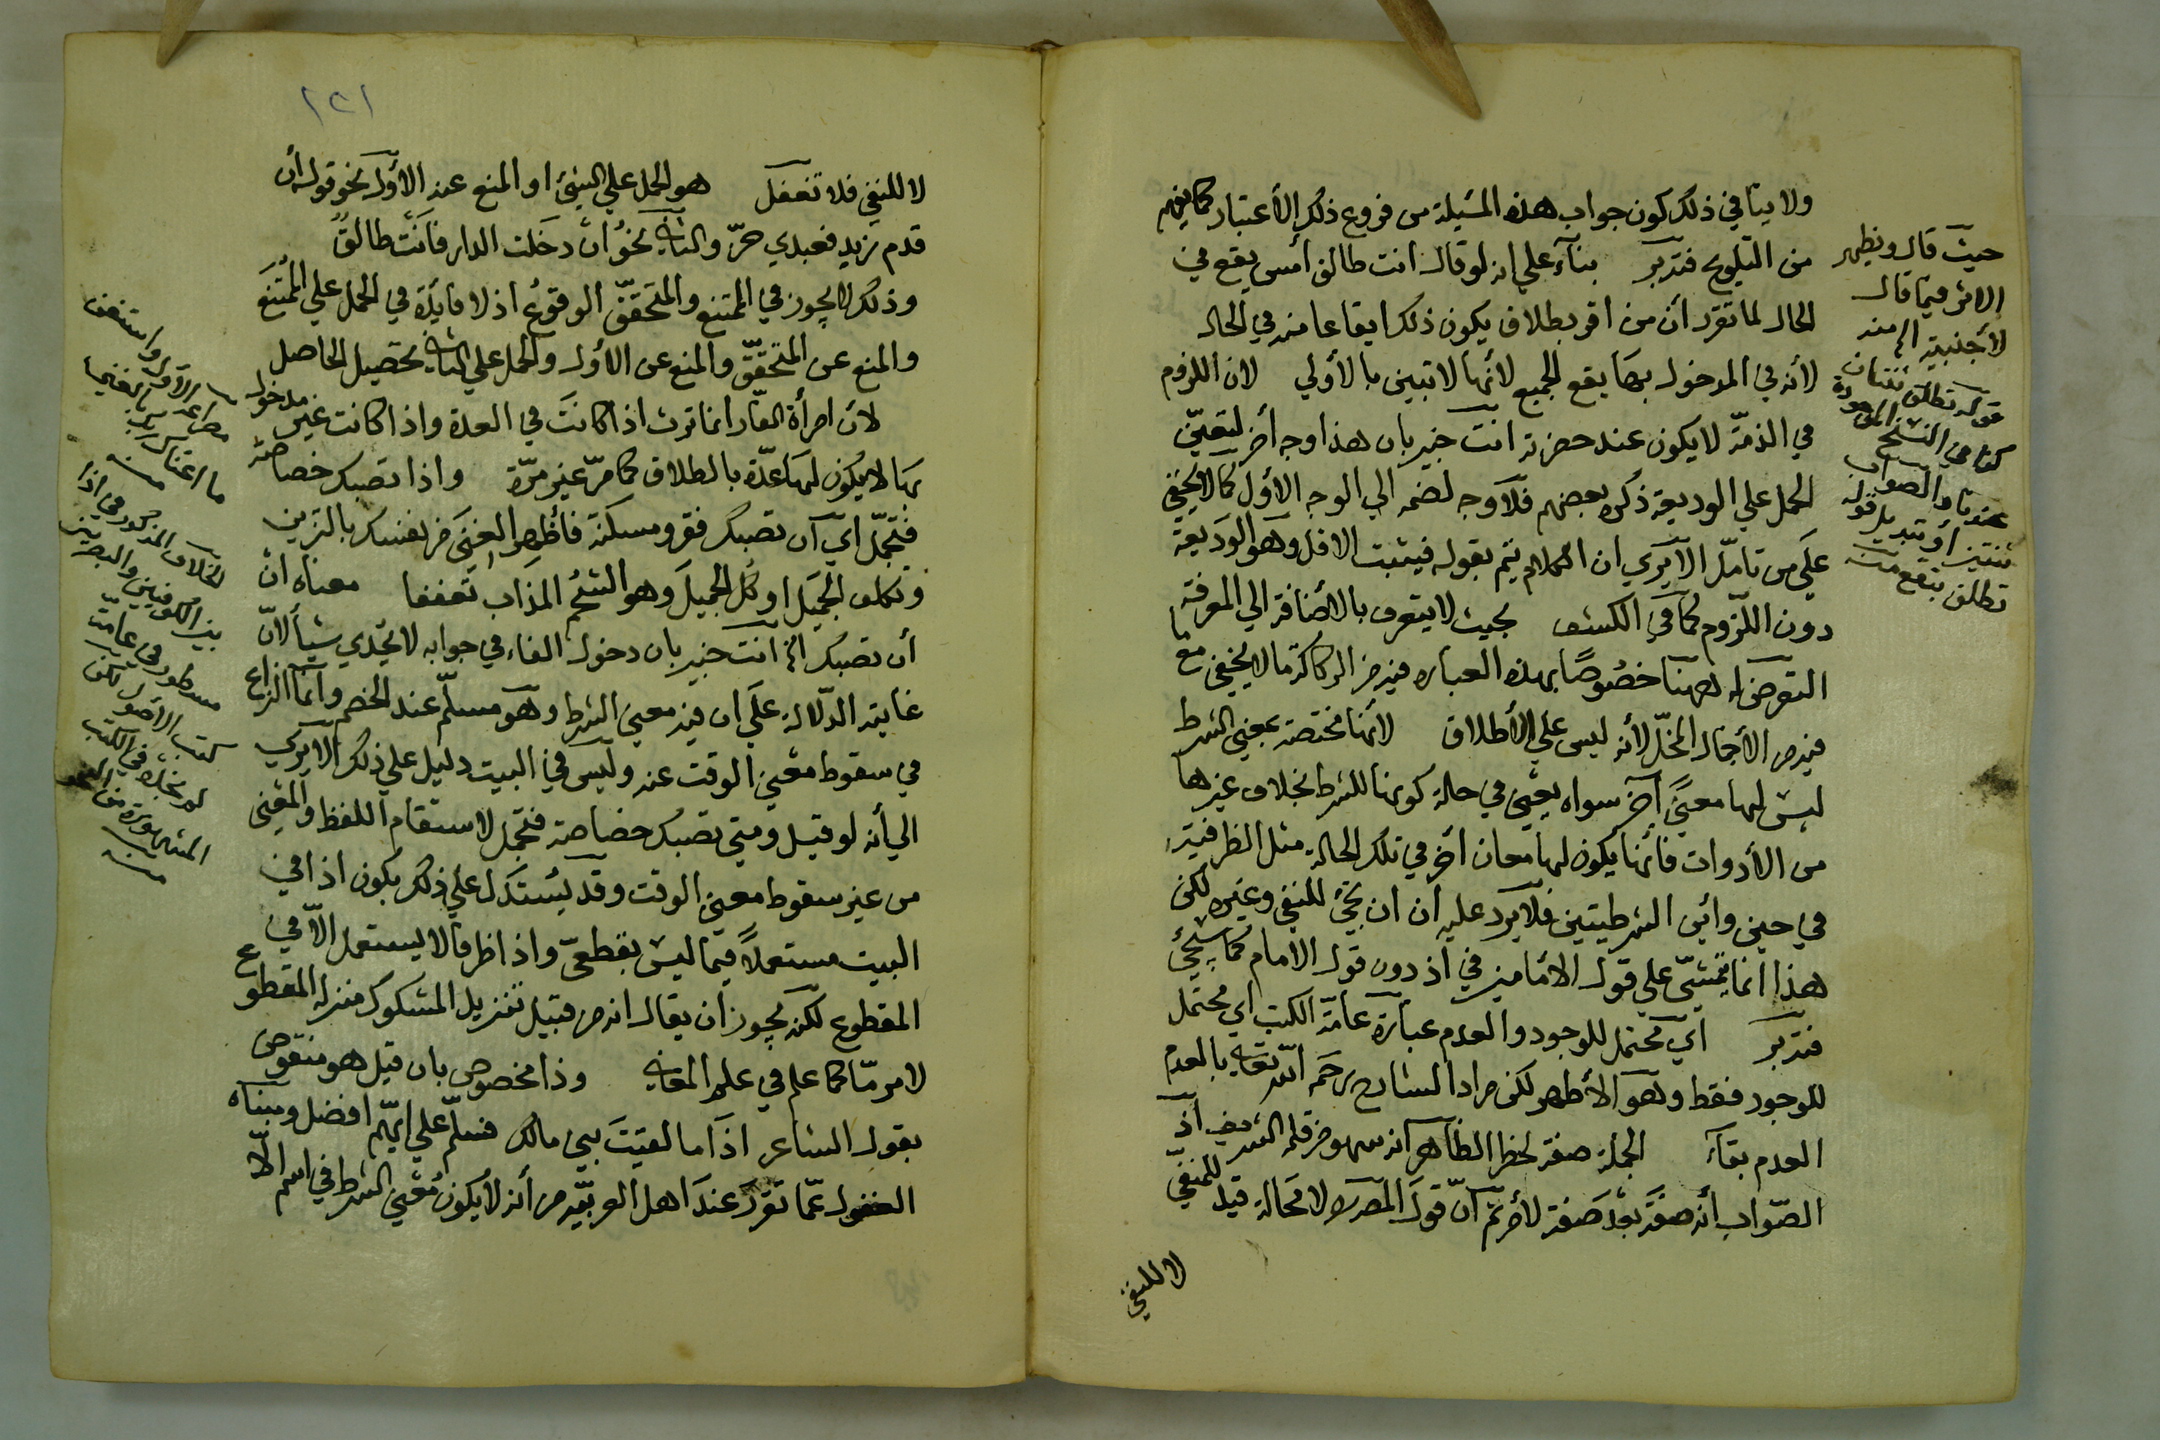 ولا ينافي ذلك كون جواب هذه المسئلة من فروع ذلك الأعتبار كما يفهم
من التلويح فتدبر بناء علي انه لو قال انت طالق أمس يقع في
الحال لما تقرر أن من اقر بطلاق يكون ذلك ايقاعا منه في الحال
لأنه في المدخول بها يقع الجميع لأنها لا تبين بالأولي لان اللزوم
في الذمة لا يكون عند حضرته انت خبير بان هذا وجه أخر لتعين
الحمل علي الوديعة ذكره بعضهم فلا وجه لضمه الي الوجه الأول كما لا يخفي
علي من تامل الا يري ان الكلام يتم بقوله فيثبت الاقل وهو الوديعة
دون اللزوم كما في الكشف بحيث لا يتعرف بالأضافة الي المعرفة
التعرض له ههنا خصوصا بهذه العبارة فيه من الركاكة ما لا يخفي مع ما
فيه من الأجمال المخل لأنه ليس علي الأطلاق لأنها مختصة بمعني الشرط
ليس لها معني آخر سواه يعني في حالة كونها للشرط بخلاف غيرها
من الأدوات فأنها يكون لها معان أخر في تلك الحالة مثل الظرفية
في حين وأين الشرطيتين فلا يرد عليه ان ان تجئ للنفي وغيره لكن
هذا انما يتمشي علي قول الامامين في اذ دون قول الامام كما سيجئ
فتدبر أي محتمل للوجود والعدم عبارة عامة الكتب اي محتمل
للوجود فقط وهو الأظهر لكن مراد الشارح رحمه الله تعالي بالعدم
العدم بقاء الجملة صفة لخطر الظاهر انه سهو من قلمه الشريف اذ
الصواب أنه صفة بعد صفة لأمر ثم ان قول المص لا محالة قيد للمنفي
لا للنفي
حيث قال ويظهر
الاثر فيما قال
لأجنبية الخ منه
قوله تطلق ثنتان
كذا في النسخ الموجودة
عندنا والصواب
ثنتين أو تبديل قوله
تطلق بتقع منه
١٢١
لا للنفي فلا تغفل هو الحمل علي الشئ او المنع عنه الأول نحو قوله أن
قدم زيد فعبدي حر والثاني نحو ان دخلت الدار فأنت طالق
وذلك لا يجوز في الممتنع والمتحقق الوقوع اذ لا فايدة في الحمل علي الممتنع
والمنع عن المتحقق والمنع عن الاول والحمل علي الثاني تحصيل الحاصل
لأن امرأة الفار انما ترث اذا كانت في العدة واذا كانت غير مدخول
بها لا يكون لها عدة بالطلاق كما مر غير مرة واذا تصبك خصاصة
فتجمل اي ان تصبك فقر ومسكنة فأظهر الغني من نفسك بالتزين
وتكلف الجميل او كل الجميل وهو الشحم المذاب تعففا معناه ان
أن تصبك الخ انت خبير بان دخول الفاء في جوابه لا يجدي شيأ لان
غايته الدلالة علي ان فيه معني الشرط وهو مسلم عند الخصم وانما النزاع
في سقوط معني الوقت عنه وليس في البيت دليل علي ذلك الا يري
الي أنه لو قيل ومتي تصبك خصاصة فتجمل لاستقام اللفظ والمعني
من غير سقوط معني الوقت وقد يستدل علي ذلك بكون اذا في
البيت مستعملا فيما ليس بقطعي واذا ظرفا لا يستعمل الا في
المقطوع لكنه يجوز ان يقال انه من قبيل تنزيل المشكوك منزلة المقطوع
لامر ما كما علم في علم المعاني وذا مخصوص بان قيل هو منقوض
بقول الشاعر اذا ما لقيت بني مالك فسلم علي ايهم افضل ومبناه
الغفول عما تقرر عند اهل العربية من أنه لا يكون معني الشرط في اسم الا
ما اغناك ربك بالغني
منه
الخلاف المذكور في اذا
بين الكوفيين والبصريين
مسطور في عامة
كتب الاصول لكن
لم نجده في الكتب
المشهورة من النحو
منه